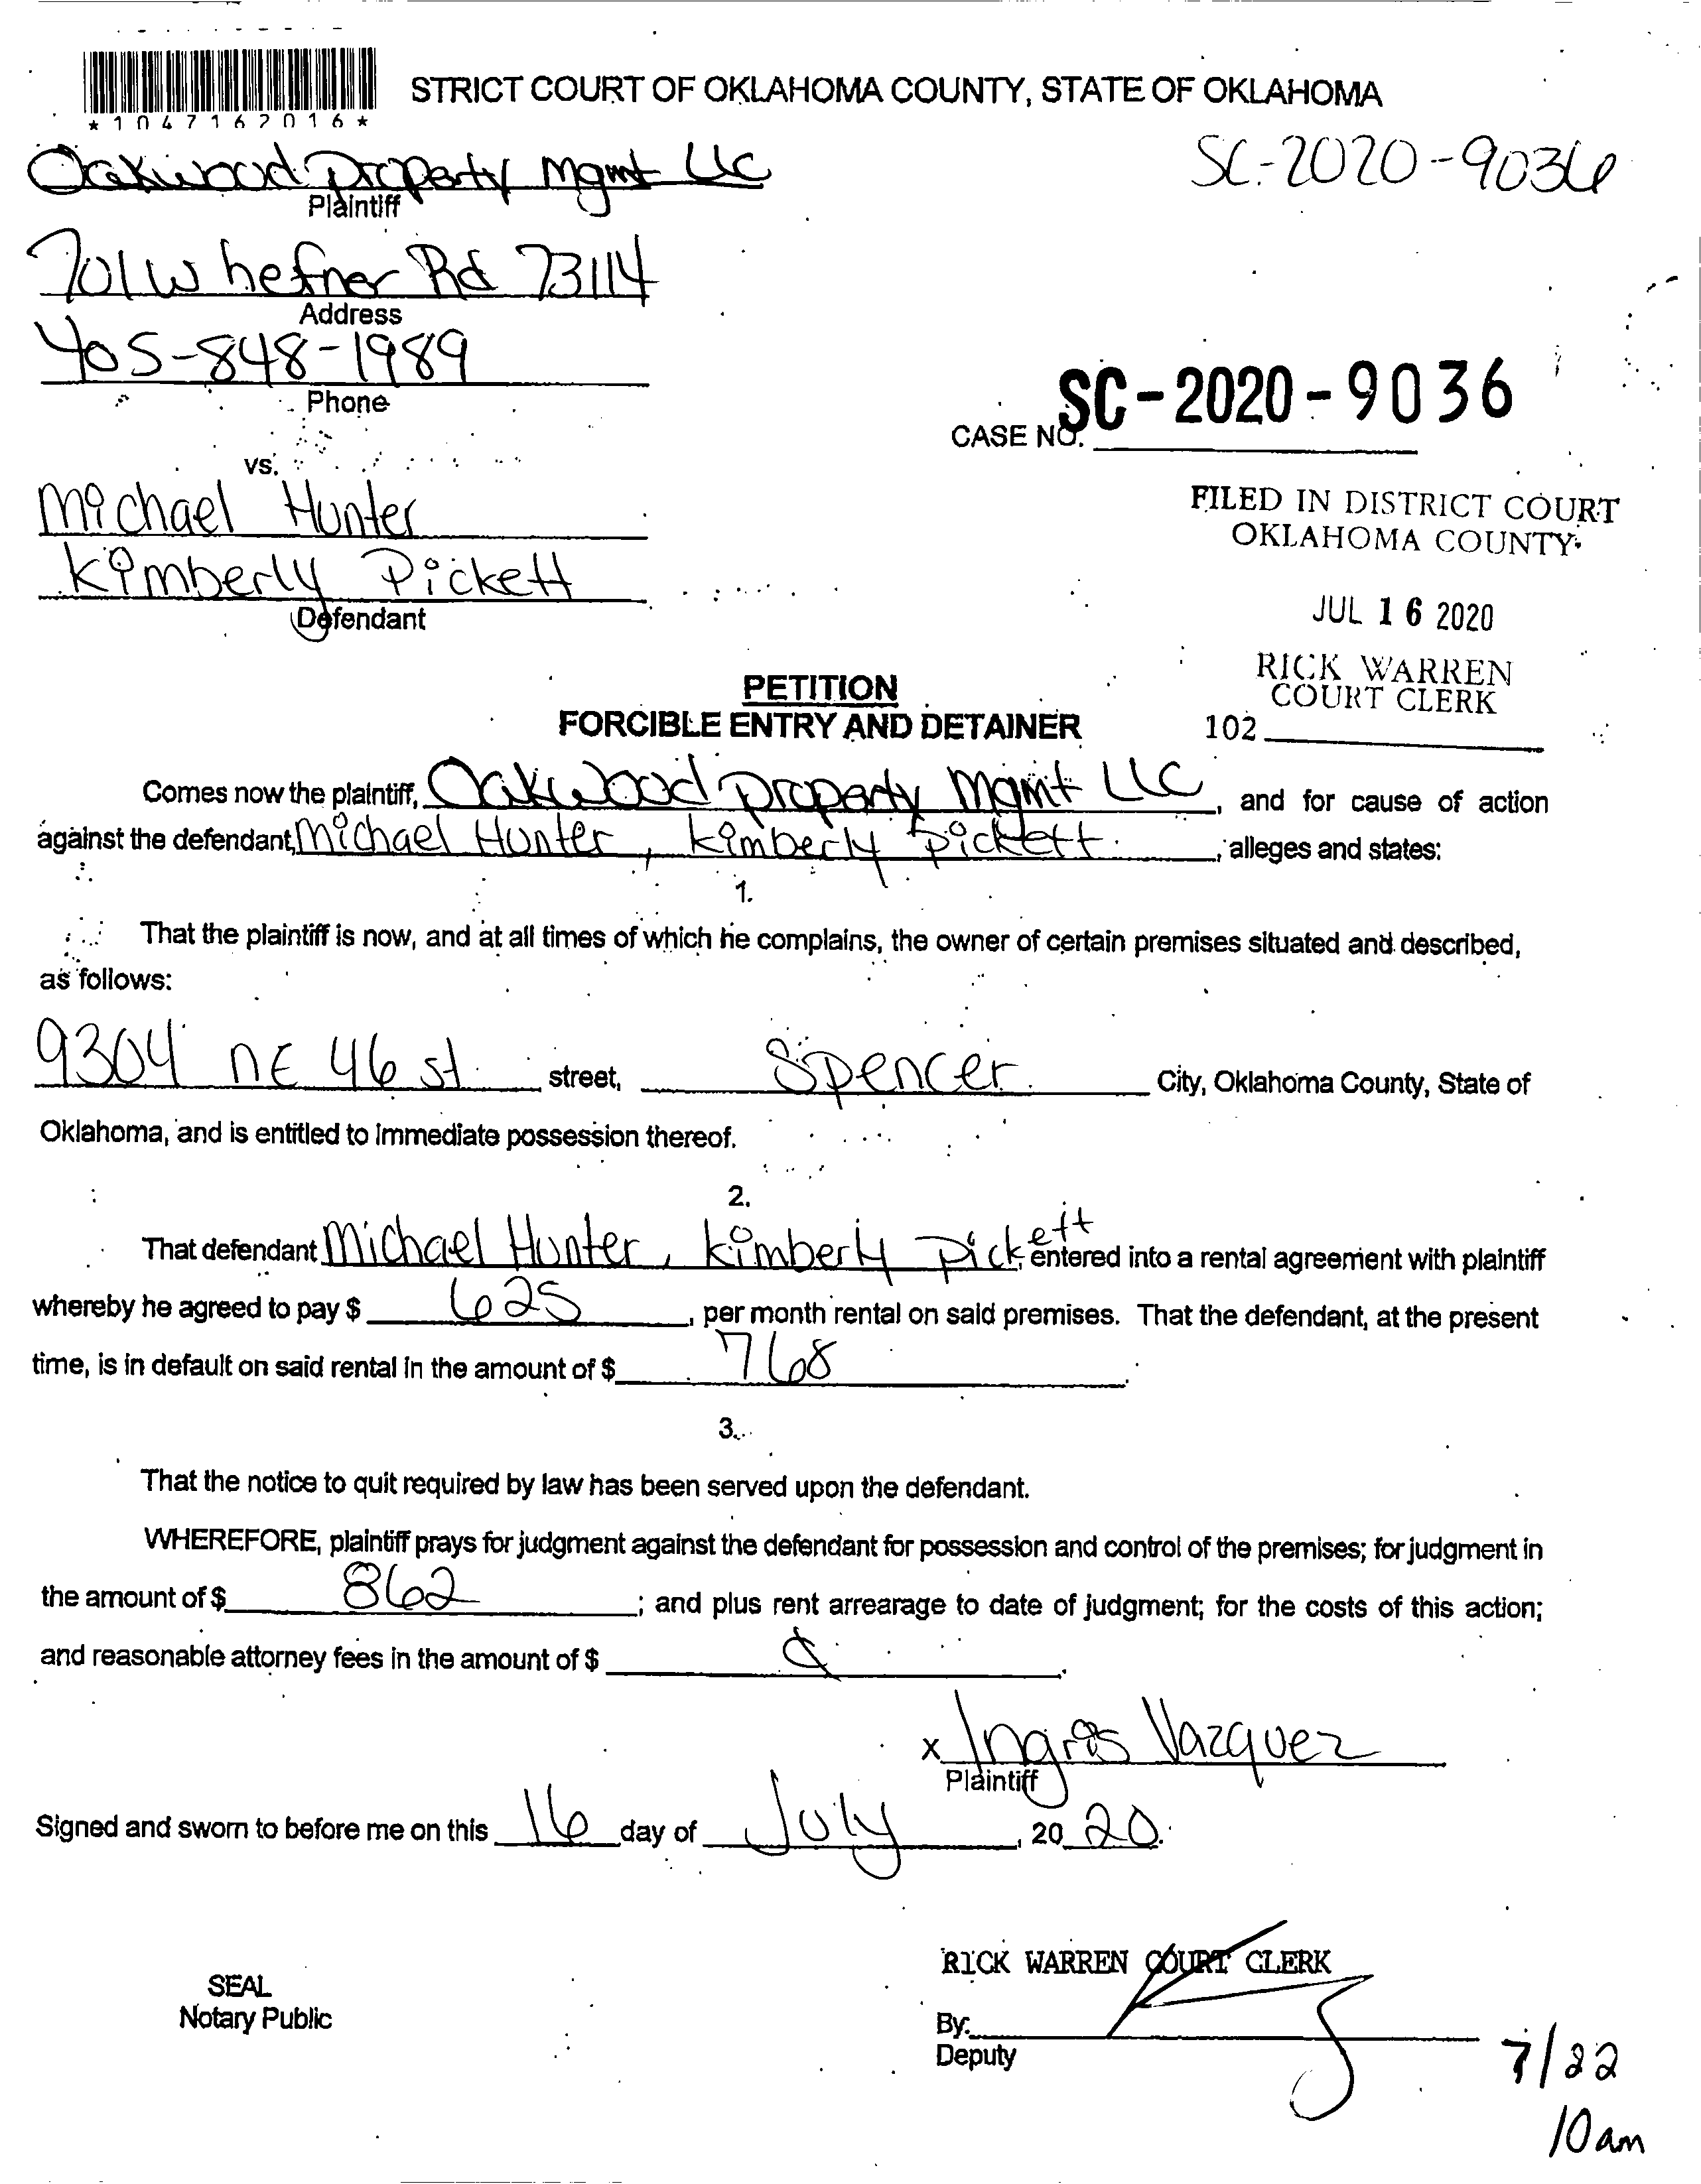 *1047162016*
STRICT COURT OF OKLAHOMA COUNTY, STATE OF OKLAHOMA
Oakwood Property Mgmt LLC
Plaintiff
SC-2020-9036
701 W hefner Rd 73114
Address
405-848-1989
Phone
CASE NO. SC-2020-9036
vs.
Michael Hunter
Kimberly Pickett
Defendant
FILED IN DISTRICT COURT
OKLAHOMA COUNTY
JUL 16 2020
RICK WARREN
COURT CLERK
102
PETITION
FORCIBLE ENTRY AND DETAINER
Comes now the plaintiff, Oakwood Property Mgmt LLC, and for cause of action
against the defendant, Michael Hunter, Kimberly Pickett, alleges and states:
1.
That the plaintiff is now, and at all times of which he complains, the owner of certain premises situated and described,
as follows:
9304 NE 46 st street, Spencer City, Oklahoma County, State of
Oklahoma, and is entitled to immediate possession thereof.
2.
That defendant Michael Hunter, Kimberly Pickett, entered into a rental agreement with plaintiff
whereby he agreed to pay $ 625, per month rental on said premises. That the defendant, at the present
time, is in default on said rental in the amount of $ 768.
3.
That the notice to quit required by law has been served upon the defendant.
WHEREFORE, plaintiff prays for judgment against the defendant for possession and control of the premises; for judgment in
the amount of $ 862; and plus rent arrearage to date of judgment; for the costs of this action;
and reasonable attorney fees in the amount of $
x Ingris Vazquez
Plaintiff
Signed and sworn to before me on this 16 day of July, 2020.
SEAL
Notary Public
RICK WARREN COURT CLERK
By:
Deputy
7/22
10am